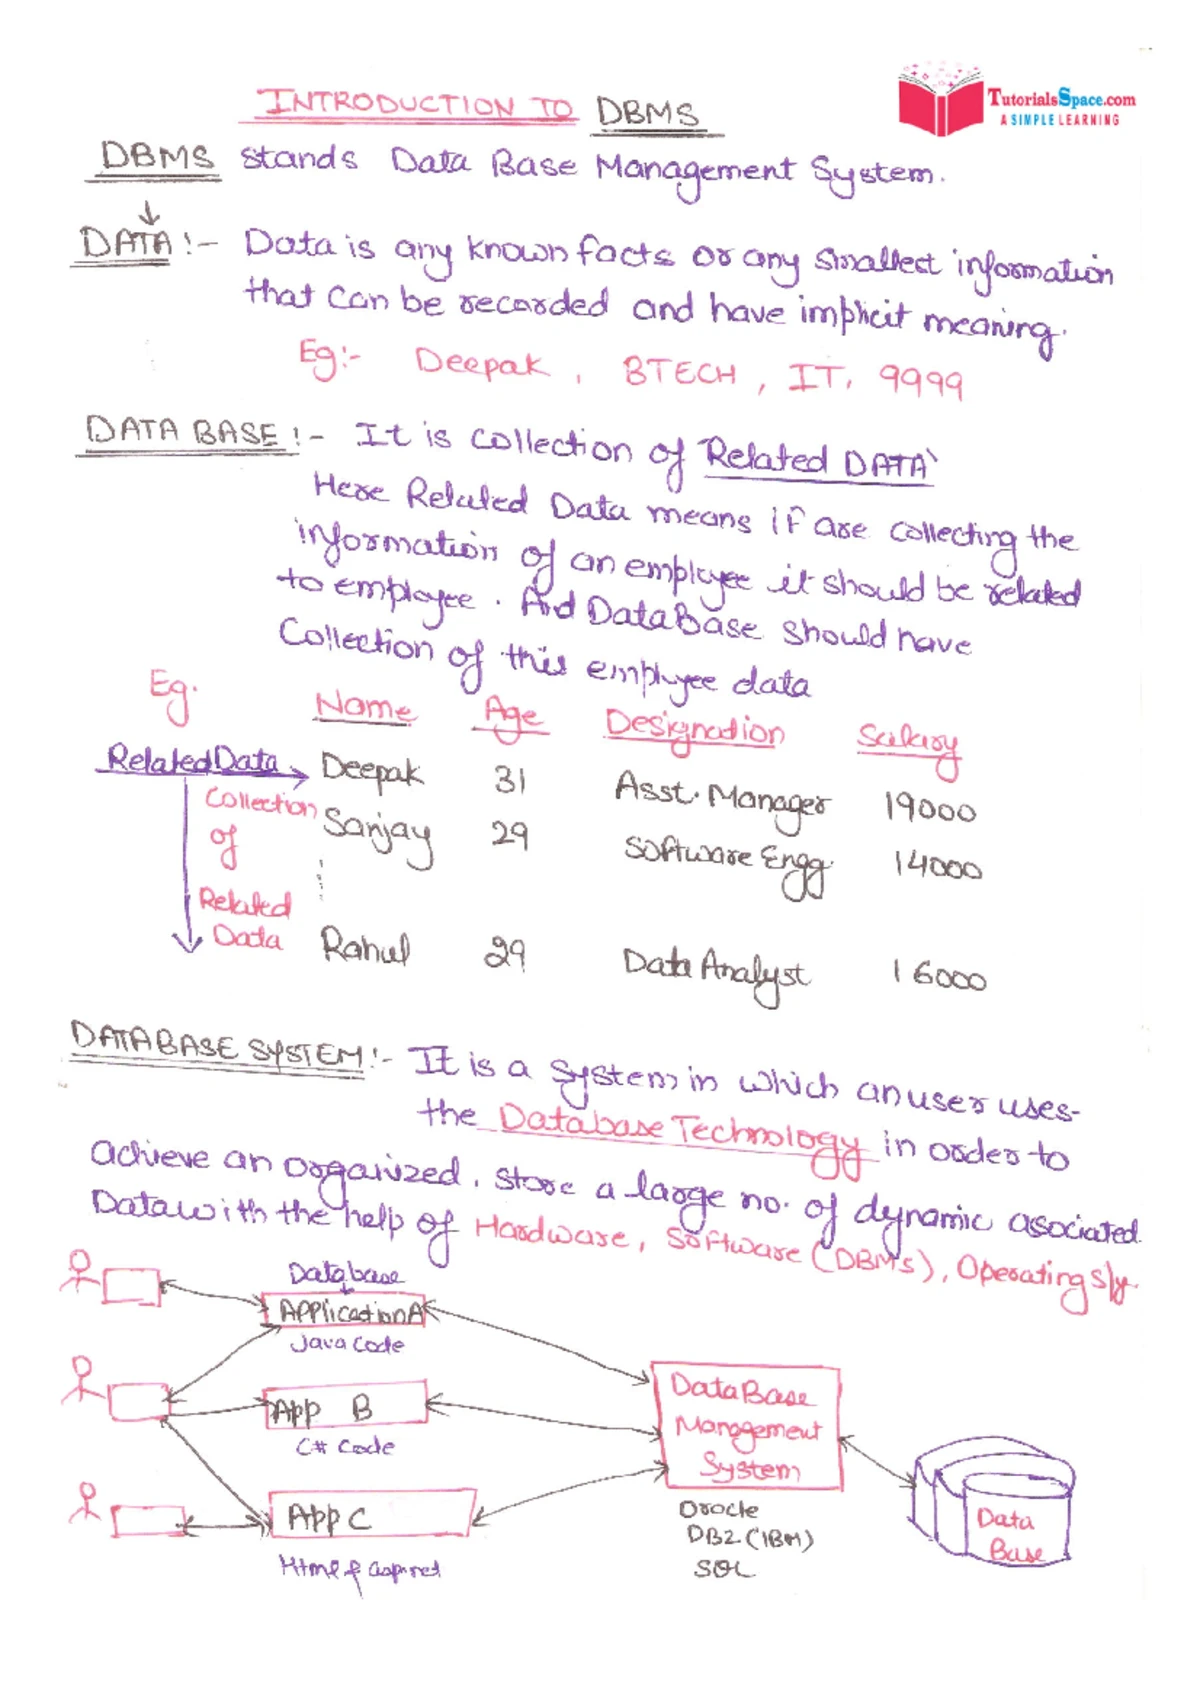 INTRODUCTION TO DBMS
TutorialsSpace.com
A SIMPLE LEARNING
DBMS stands Data Base Management System.
DATA :- Data is any known facts or any smallest information
that can be recorded and have implicit meaning.
Eg:- Deepak, BTECH, IT, 9999
DATA BASE :- It is collection of Related DATA
Here Related Data means if are collecting the
information of an employee it should be related
to employee. And DataBase should have
Collection of this employee data
Eg. Name Age Designation Salary
Related Data Deepak 31 Asst. Manager 19000
Collection of Related Data
Sanjay 29 Software Engg. 14000
Rahul 29 Data Analyst 16000
DATABASE SYSTEM :- It is a system in which an user uses
the Database Technology in order to
achieve an organized, store a large no. of dynamic asociated
Data with the help of Hardware, Software (DBMS), Operating s/y.
Database
Application A
Java Code
App B
C# Code
App C
Html & asp.net
DataBase
Management
System
Oracle
DB2 (IBM)
SQL
Data
Base